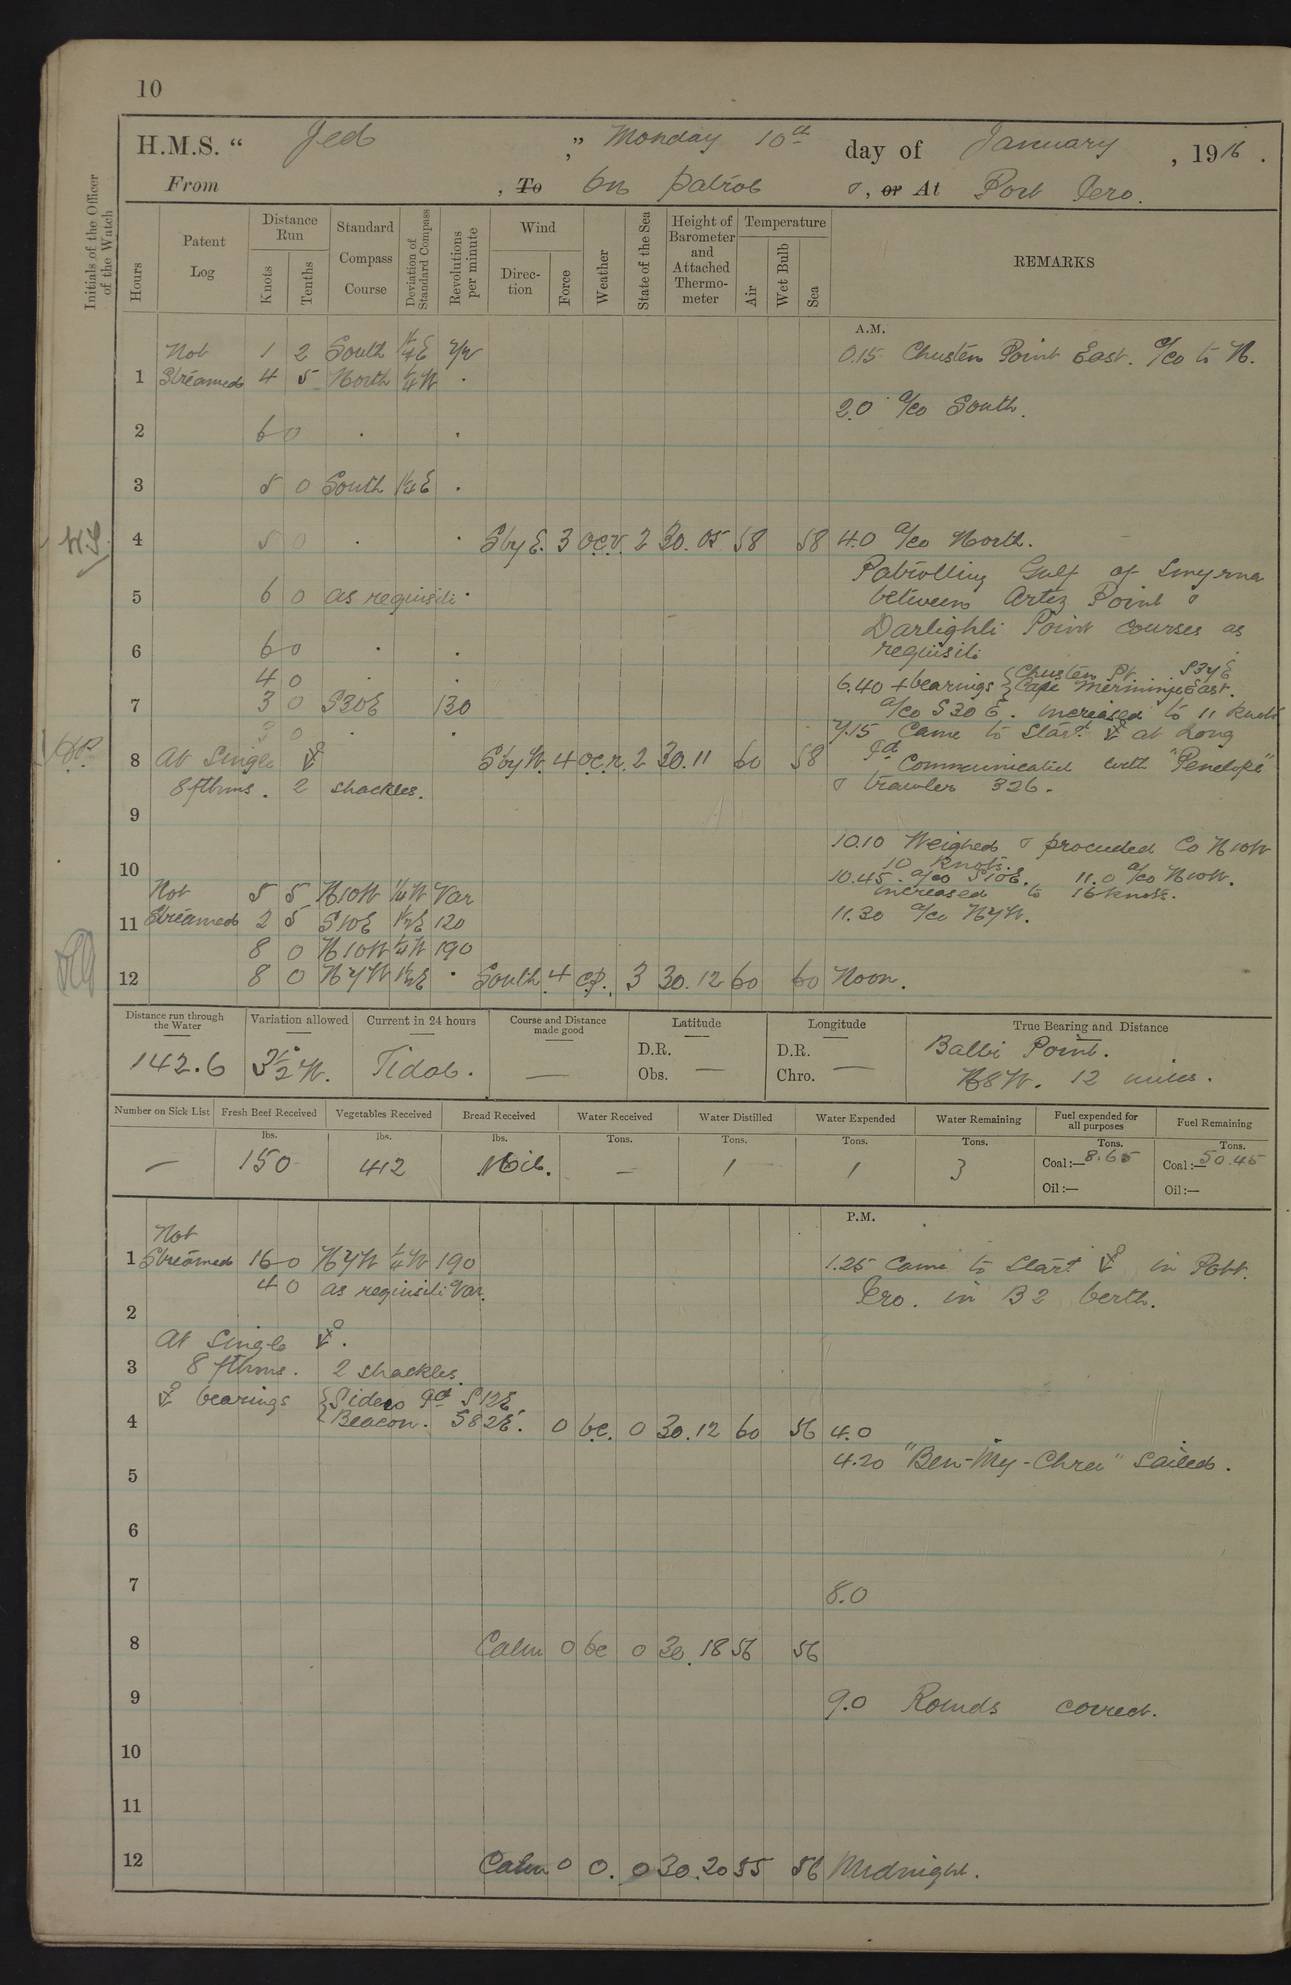 10
H.M.S. “ Jed ,” Monday 10th day of January , 1916 .
From , To On patrol & , or At Port Iero.
Initials of the Officer of the Watch
Hours
Patent Log
Distance Run
Knots
Tenths
Standard Compass Course
Deviation of Standard Compass
Revolutions per minute
Wind
Direc- tion
Force
Weather
State of the Sea
Height of Barometer and Attached Thermo- meter
Temperature
Air
Wet Bulb
Sea
REMARKS
A.M.
Not 1 2 South ¼E 0.15 Chusten Point East. a/co to N.
1 Streamed 4 5 North ¼W .
2.0 a/co South.
2 6 0 . .
3 5 0 South ¼E .
4 5 0 . . S by E. 3 o.c.v. 2 30.05 58 58 4.0 a/co North.
Patrolling Gulf of Smyrna
5 6 0 as requisite . between Artez Point &
Darlighli Point courses as
6 6 0 . . requisite
4 0 . . 6.40 + bearings { Chusten Pt. S34E
Cape Merminji East.
7 3 0 S30E 130 a/co S 30 E. increased to 11 knots
3 0 . . 7.15 Came to Starbd ⚓ at Long
8 At Single ⚓ S by W. 4 o.c.r. 2 30.11 60 58 Id Communicated with "Penelope"
8 fthms. 2 shackles. & trawler 326.
9
10.10 Weighed & proceeded Co N10W
10 10 knots.
10.45 a/co S10E. 11.0 a/co N10W.
Not 5 5 N10W ¼W Var increased to 16 knots.
11 Streamed 2 5 S10E ½E 120 11.30 a/co N7W.
8 0 N10W ¼W 190
12 8 0 N7W ½E . South 4 c.p. 3 30.12 60 60 Noon.
Distance run through the Water
Variation allowed
Current in 24 hours
Course and Distance made good
Latitude
Longitude
True Bearing and Distance
142.6 3½°W. Tidal. — D.R. D.R. Balbi Point.
Obs. — Chro. — N8W. 12 miles.
Number on Sick List
Fresh Beef Received
Vegetables Received
Bread Received
Water Received
Water Distilled
Water Expended
Water Remaining
Fuel expended for all purposes
Fuel Remaining
lbs. lbs. lbs. Tons. Tons. Tons. Tons. Tons. Tons.
— 150 412 Nil. — 1 1 3 Coal :— 8.65 Coal :— 50.45
Oil :— Oil :—
P.M.
Not
1 Streamed 16 0 N7W ¼W 190 1.25 Came to Starbd ⚓ in Port
4 0 as requisite Var. Iero. in B2 berth.
2
At Single ⚓.
3 8 fthms. 2 shackles.
⚓ bearings { Sidero Id S12E.
4 Beacon. S82E. 0 b.c. 0 30.12 60 56 4.0
4.20 "Ben-My-Chree" sailed.
5
6
7
8.0
8 Calm 0 bc 0 30.18 56 56
9 9.0 Rounds correct.
10
11
12 Calm 0 o. 0 30.20 55 56 Midnight.